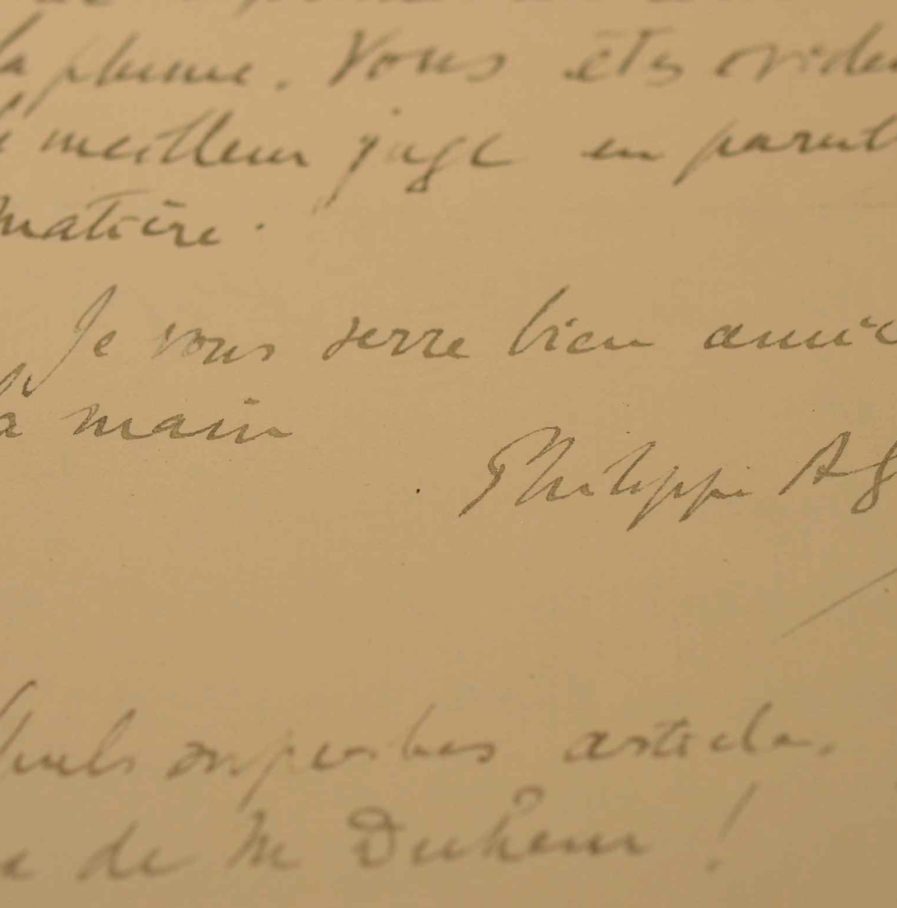 la plume. Vous êtes éviden
meilleur juge en pareil
matière.
Je vous serre bien amic
la main
Philippe Ag
Quels superbes articles
de M Duhem !